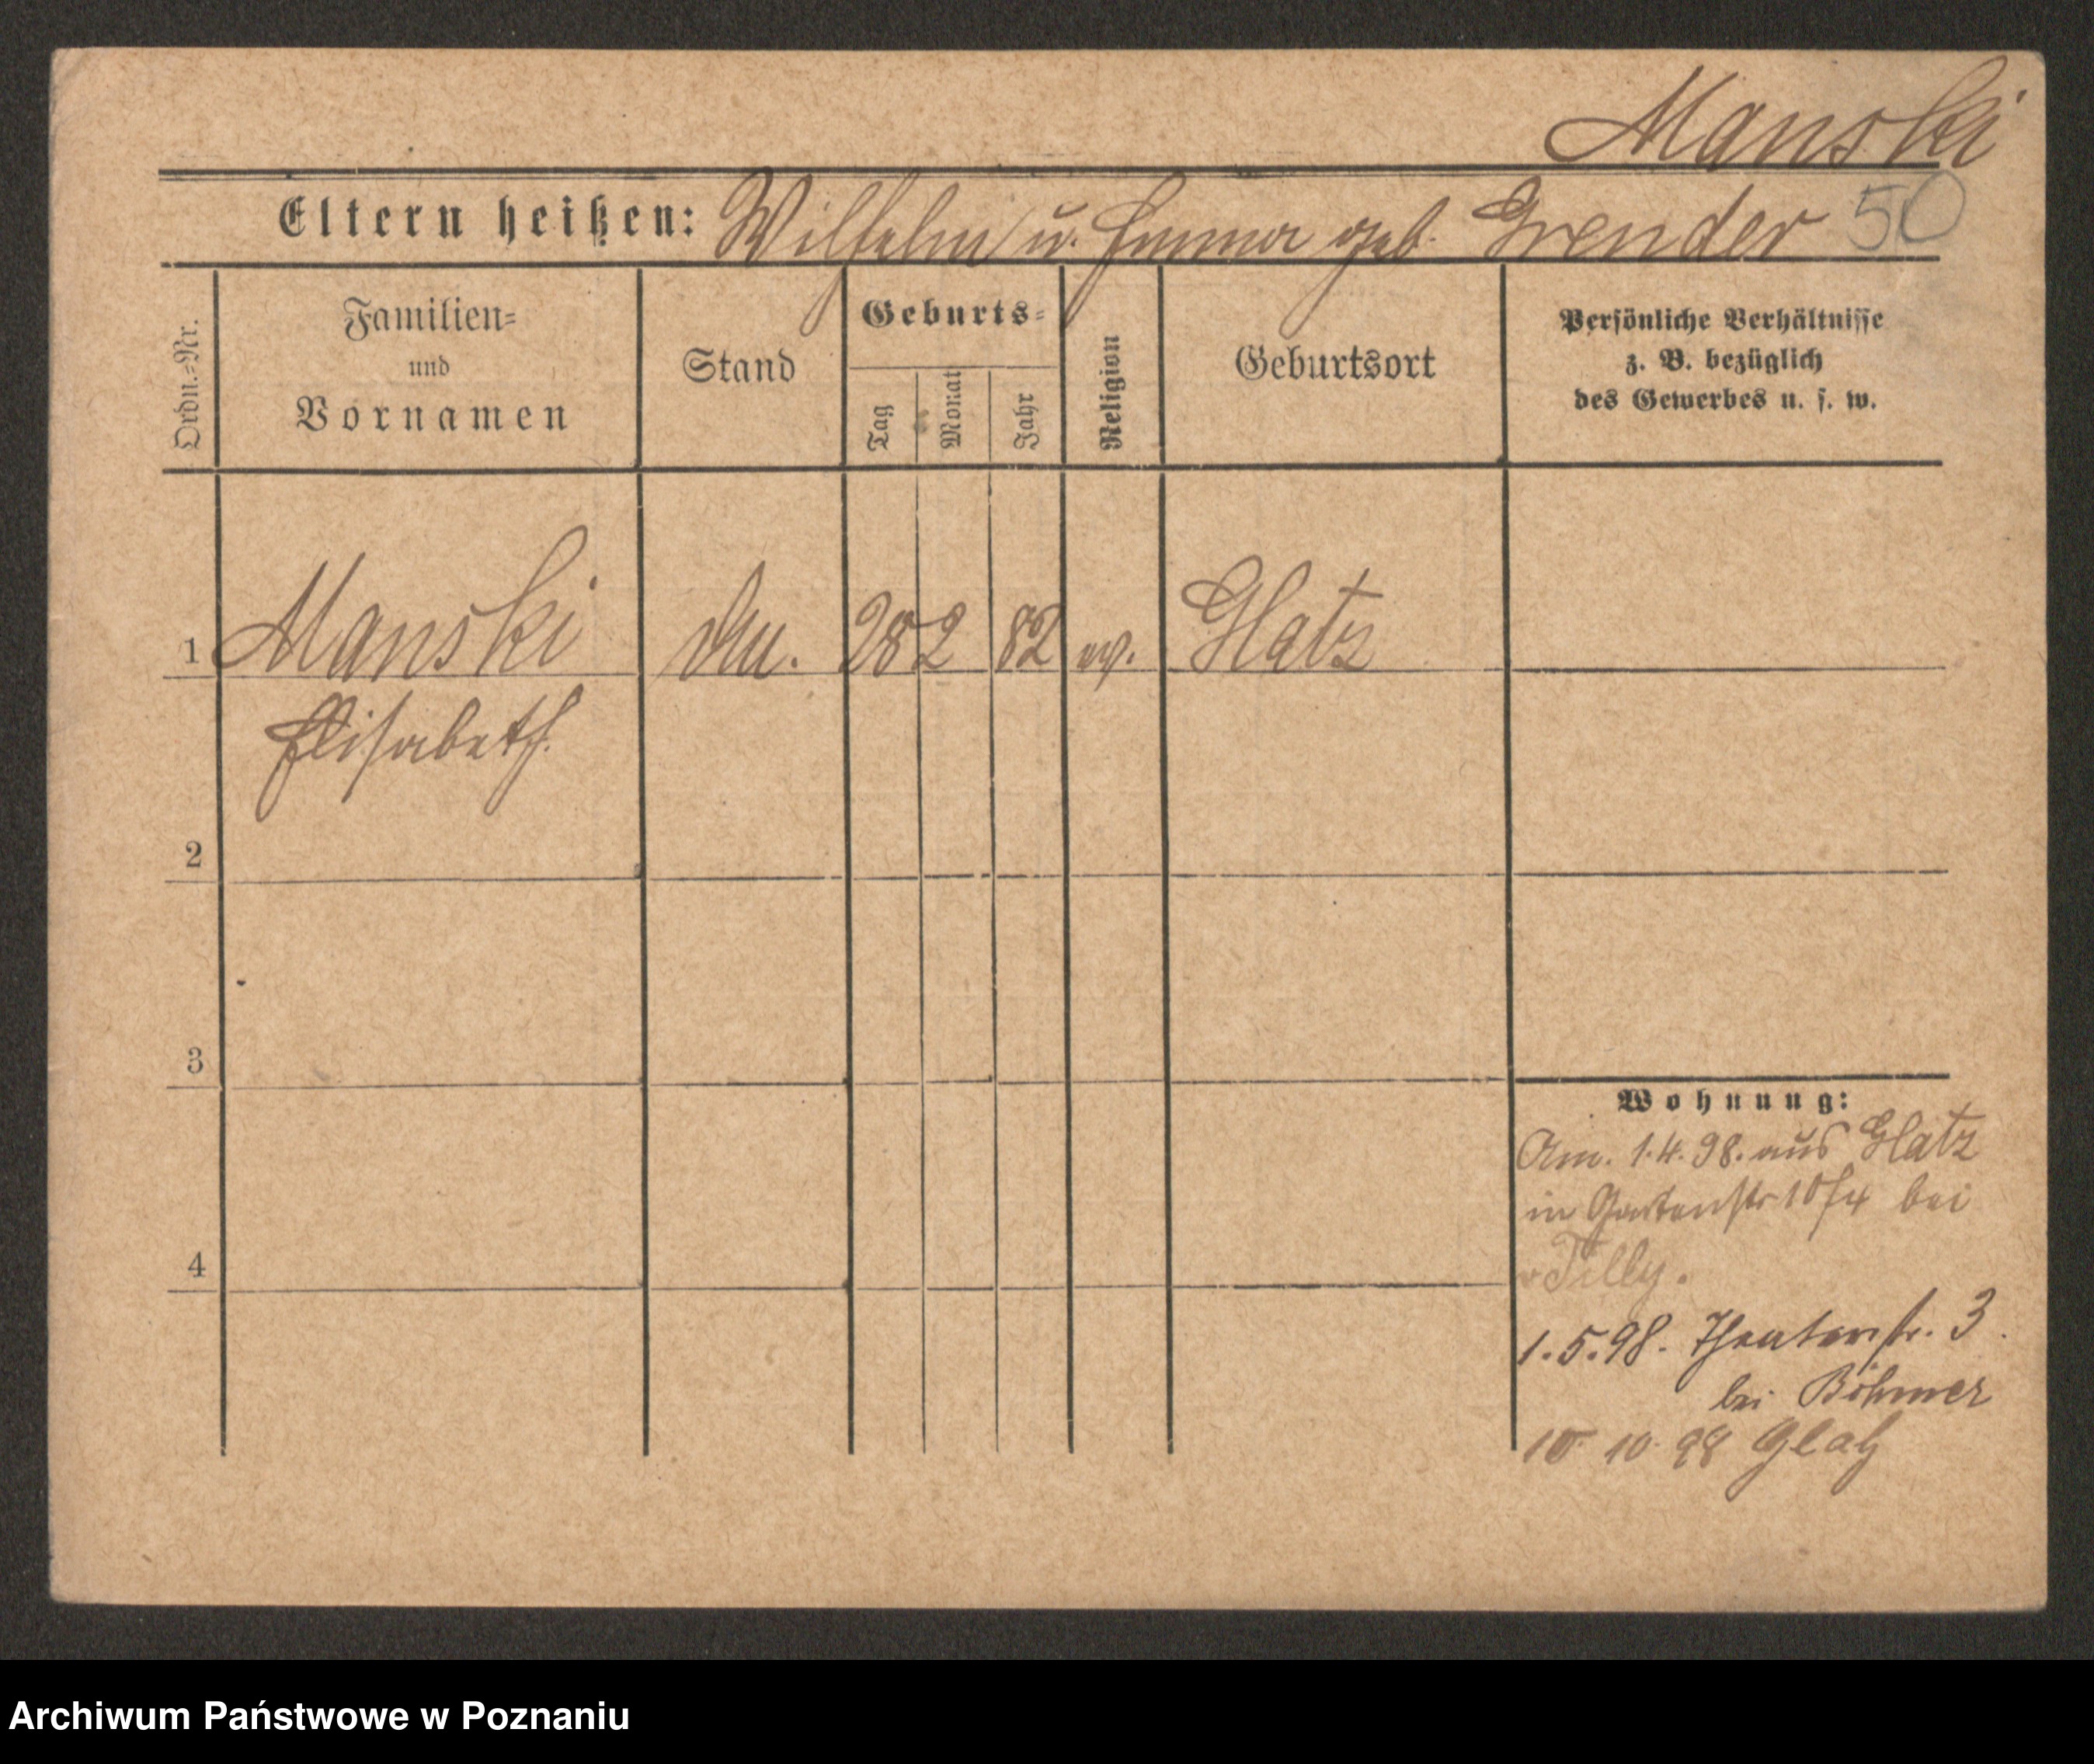 Manski
Eltern heißen: Wilhelm u. Emma geb. Grender 50
Ordn.=Nr.
Familien=
und
Vornamen
Stand
Geburts=
Tag
Monat
Jahr
Religion
Geburtsort
Persönliche Verhältnisse
z. B. bezüglich
des Gewerbes u. s. w.
1 Manski 28 2 82 ev. Glatz
Elisabeth.
2
3
4
Wohnung:
Am. 1.4.98. aus Glatz
in Gartenstr bei
v Tilly.
1.5.98. Theaterstr. 3
bei Böhmer
10 10 98 Glatz
Archiwum Państwowe w Poznaniu